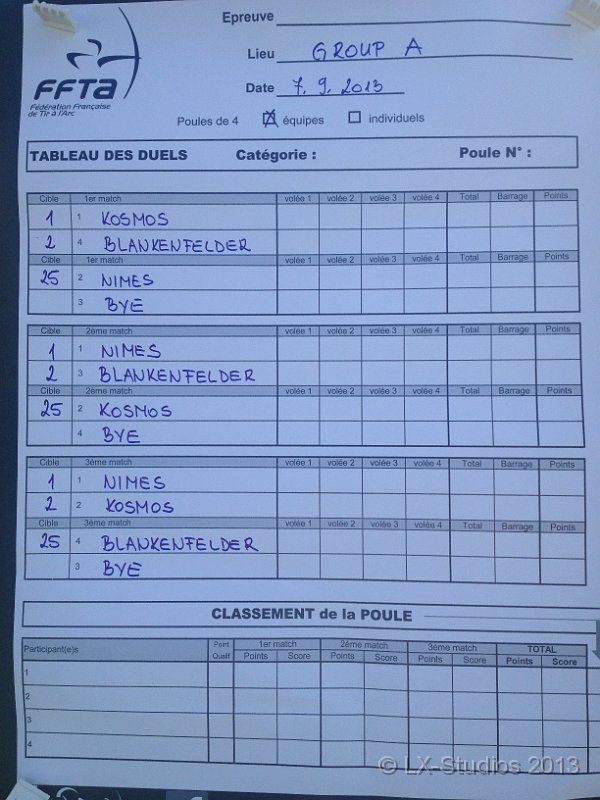 Epreuve
Lieu GROUP A
Date 7. 9. 2013
FFTA
Fédération Française
de Tir à l'Arc
Poules de 4 X équipes individuels
TABLEAU DES DUELS Catégorie : Poule N° :
Cible 1er match volée 1 volée 2 volée 3 volée 4 Total Barrage Points
1 1 KOSMOS
2 4 BLANKENFELDER
Cible 1er match volée 1 volée 2 volée 3 volée 4 Total Barrage Points
25 2 NIMES
3 BYE
Cible 2ème match volée 1 volée 2 volée 3 volée 4 Total Barrage Points
1 1 NIMES
2 3 BLANKENFELDER
Cible 2ème match volée 1 volée 2 volée 3 volée 4 Total Barrage Points
25 2 KOSMOS
4 BYE
Cible 3ème match volée 1 volée 2 volée 3 volée 4 Total Barrage Points
1 1 NIMES
2 2 KOSMOS
Cible 3ème match volée 1 volée 2 volée 3 volée 4 Total Barrage Points
25 4 BLANKENFELDER
3 BYE
CLASSEMENT de la POULE
Participant(e)s Point Qualif 1er match 2ème match 3ème match TOTAL
Points Score Points Score Points Score Points Score
1
2
3
4
© LX-Studios 2013